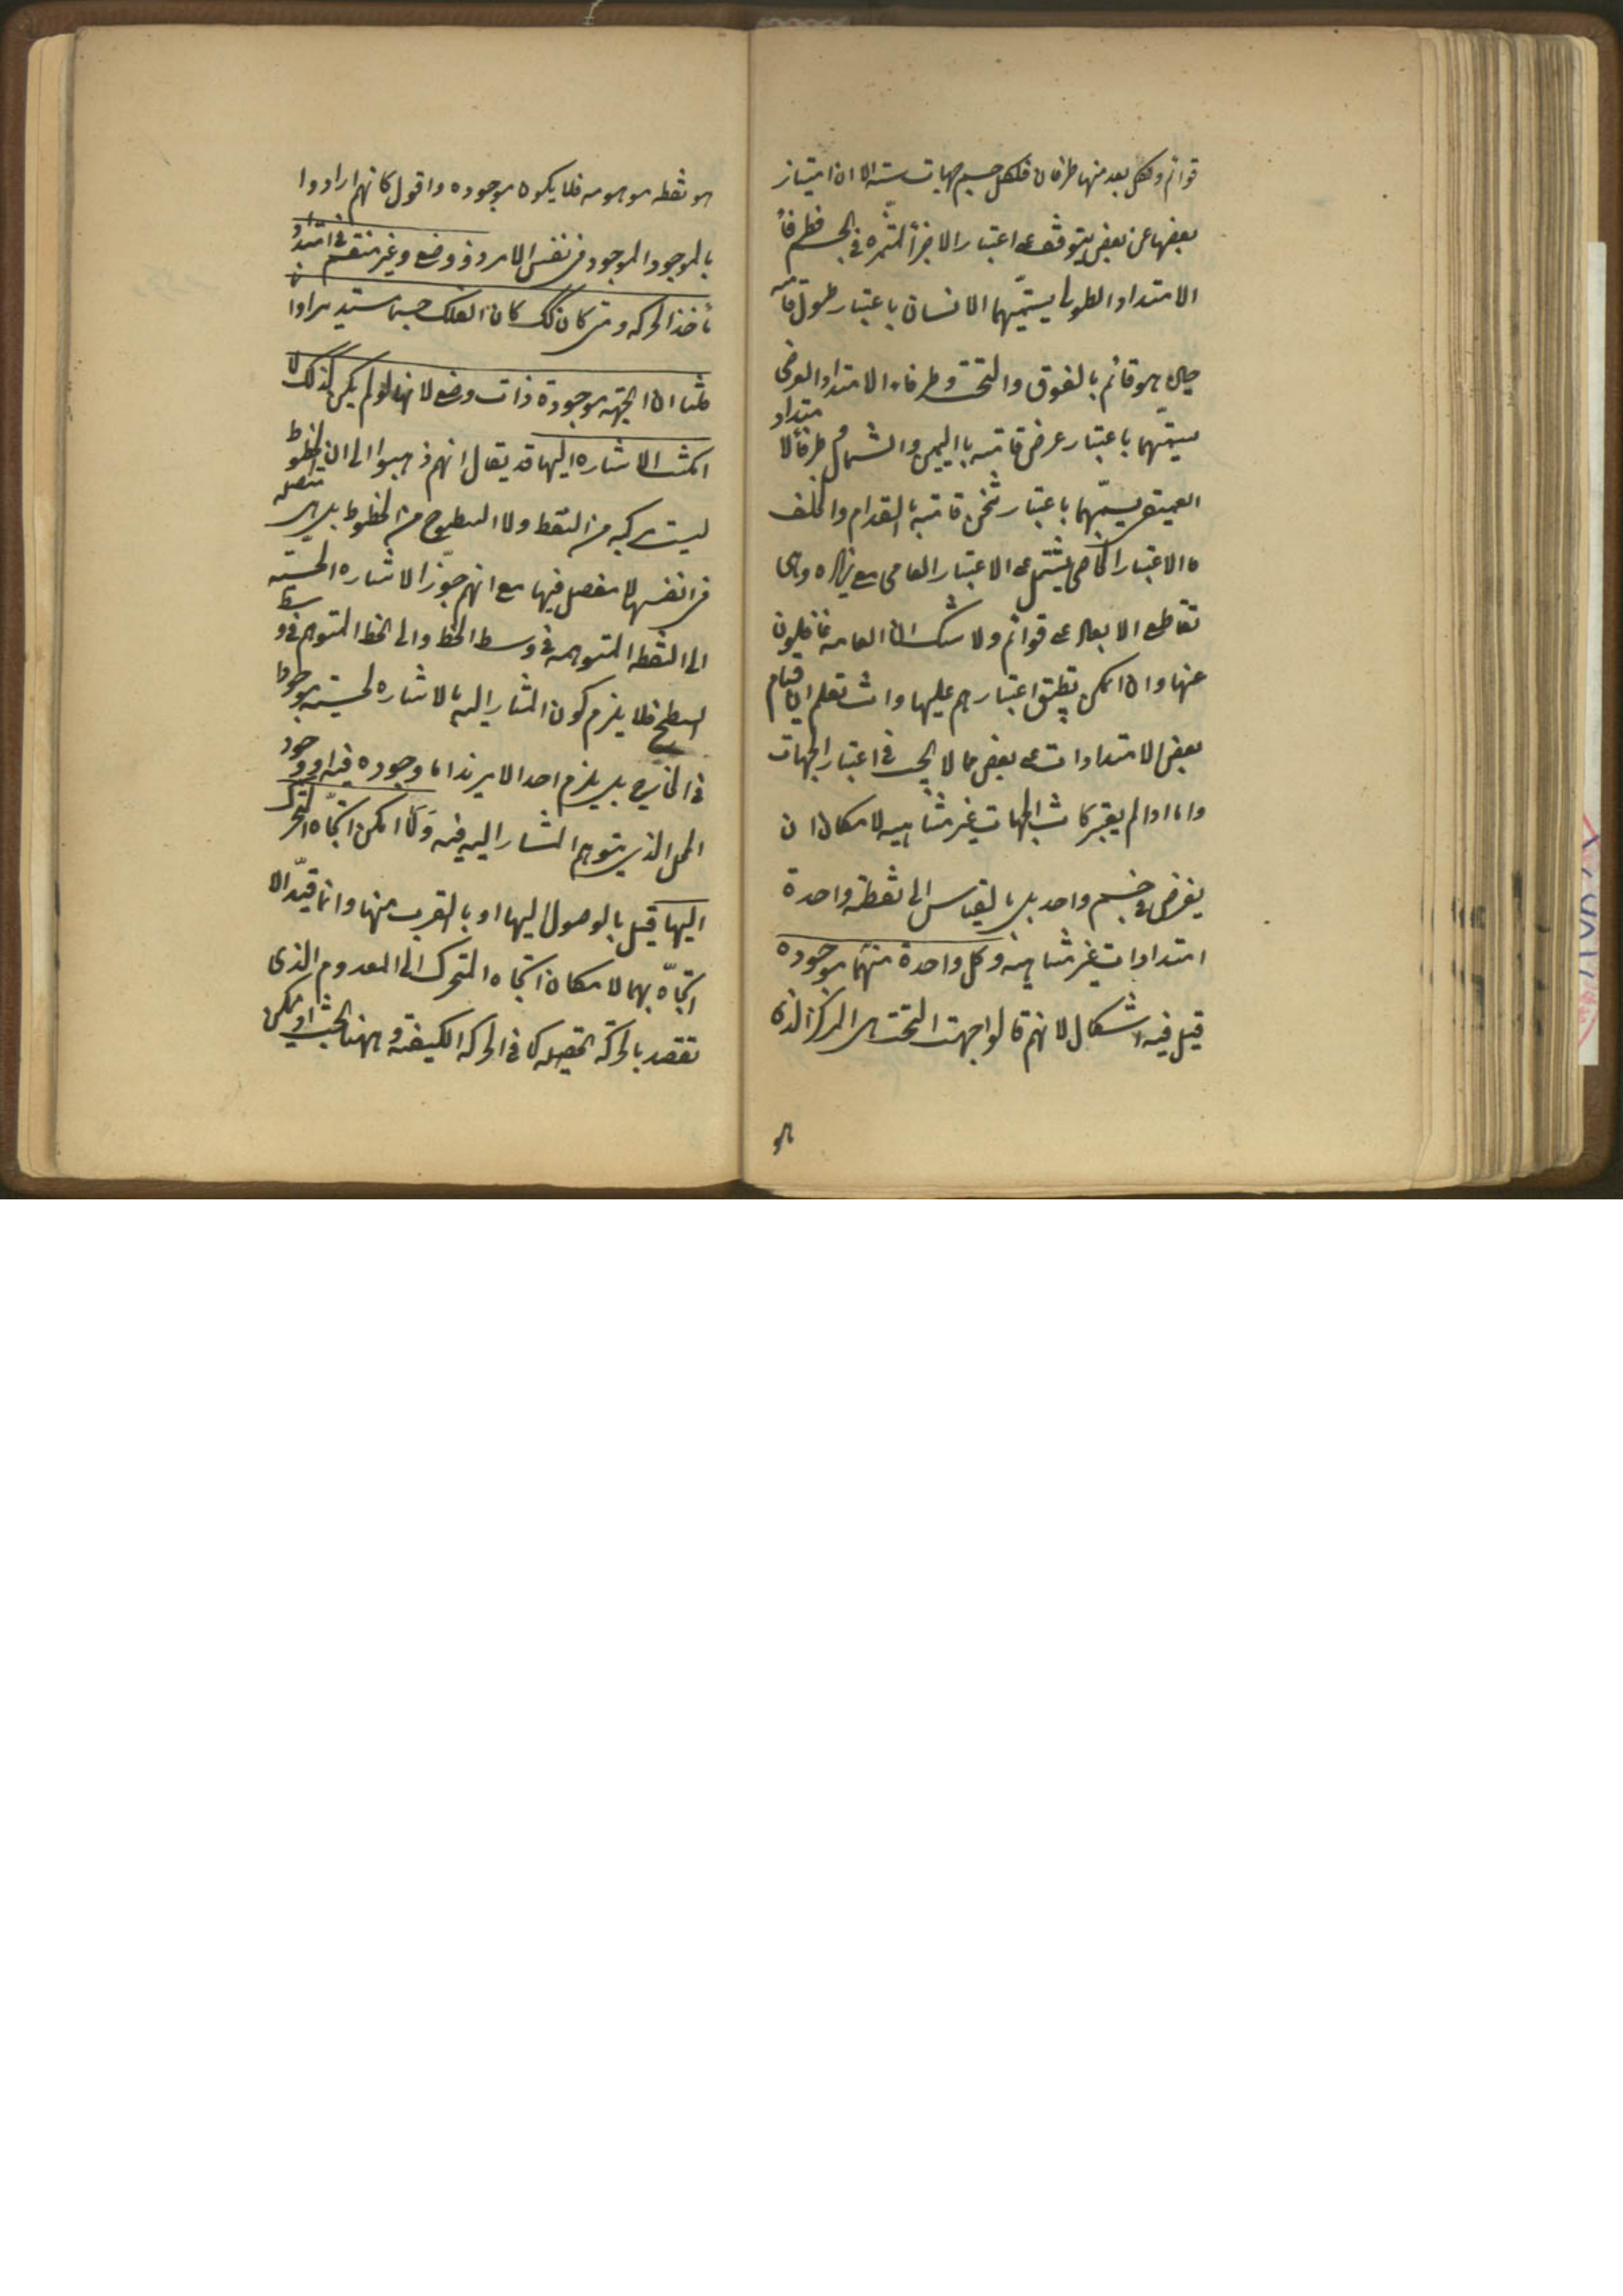 قوائم ولكل بعد منها طرفان فلكل جسم جهات ستة الا ان امتياز
بعضها عن بعض يتوقف على اعتبار الاجزأ المتميزه فى الجسم فطرفأ
الامتداد الطولى يسميهما الانسان باعتبار طول قامته
حين هو قائم بالفوق والتحت وطرفاه الامتداد العرضى
يسميهما باعتبار عرض قامته باليمين والشمال وطرفا الامتداد
العميق يسميهما باعتبار ثخن قامته بالقدام والخلف
فالاعتبار الخاصى يشتمل على الاعتبار العامى مع زياده وهى
تقاطع الابعاد على قوائم ولا شك ان العامه غافلون
عنها وان امكن تطبيق اعتبارهم عليها وانت تعلم ان قيام
بعض الامتدادات على بعض مما لا يجب فى اعتبار الجهات
واما اذا لم يعتبر كانت الجهات غير متناهيه لامكان ان
يفرض فى جسم واحد بل بالقياس الى نقطة واحدة
امتدادات غير متناهية وكل واحدة منهما موجوده
قيل فيه اشكال لانهم قالوا جهت التحت هى المركز الذى
هو
هو نقطه موهومه فلا يكون موجوده واقول كانهم ارادوا
بالموجود الموجود فى نفس الامر وذو وضع وغير منقسم فى امتداد
مأخذ الحركه ومتى كان كك كان الفلك جسما مستديرا وانما
قلنا ان الجهة موجودة ذات وضع لانها لو لم يكن كذلك لا
امكنت الاشاره اليها قد يقال انهم ذهبوا الى ان الخطوط
ليست مركبه من النقط ولا السطوح من الخطوط بل هى متصله
فى انفسها لا مفصل فيها مع انهم جوّز الاشاره الحسيه
الى النقطه المتوهمه فى وسط الخط والى الخط المتوهم فى وسط
السطح فلا يلزم كون المشار اليه بالاشاره الحسيه موجودا
فى الخارج بل يلزم احد الامرين اما وجوده فيه او وجود
المحل الذى يتوهم المشار اليه فيه ولما امكن اتجاه المتحرك
اليها قيل بالوصول اليها او بالقرب منها وانما قيد الا
اتجاه بهما لامكان اتجاه المتحرك الى المعدوم الذى
تقصد بالحركة تحصيله كما فى الحركه الكيفية وههنا بحث اذ يمكن